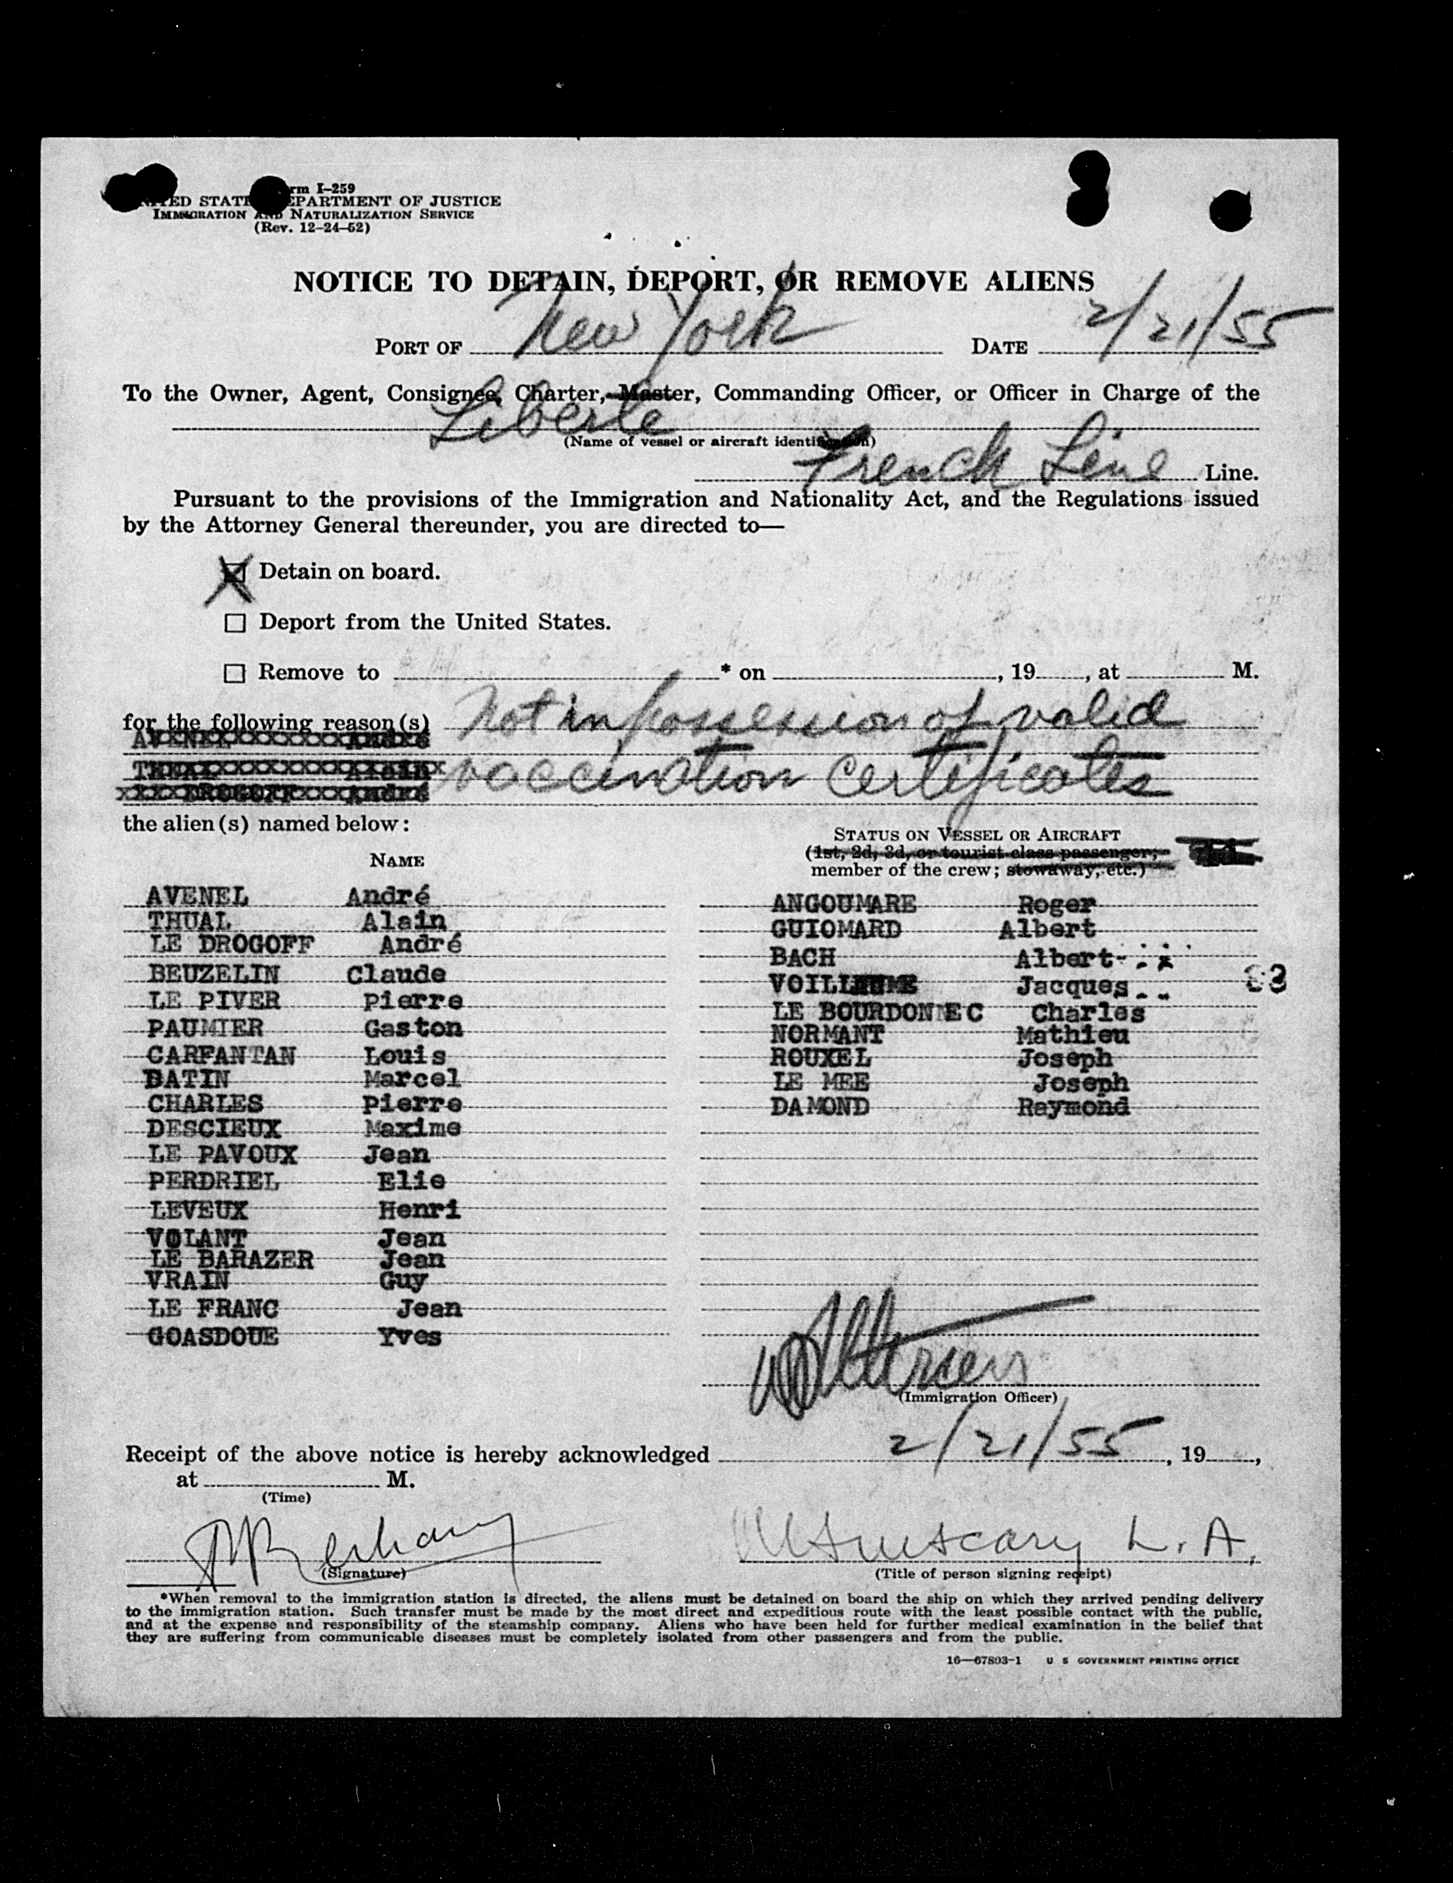 Form I-259
UNITED STATES DEPARTMENT OF JUSTICE
IMMIGRATION AND NATURALIZATION SERVICE
(Rev. 12-24-52)
NOTICE TO DETAIN, DEPORT, OR REMOVE ALIENS
PORT OF New York DATE 2/21/55
To the Owner, Agent, Consignee, Charter, Master, Commanding Officer, or Officer in Charge of the
Liberte
(Name of vessel or aircraft identification)
French Line Line.
Pursuant to the provisions of the Immigration and Nationality Act, and the Regulations issued
by the Attorney General thereunder, you are directed to—
Detain on board.
Deport from the United States.
Remove to * on , 19 , at M.
for the following reason(s) Not in possession of valid
AVENEL André
THUAL Alain vaccination certificates
LE DROGOFF André
the alien(s) named below:
NAME
STATUS ON VESSEL OR AIRCRAFT
(1st, 2d, 3d, or tourist class passenger;
member of the crew; stowaway, etc.)
AVENEL André
THUAL Alain
LE DROGOFF André
BEUZELIN Claude
LE PIVER Pierre
PAUMIER Gaston
CARFANTAN Louis
BATIN Marcel
CHARLES Pierre
DESCIEUX Maxime
LE PAVOUX Jean
PERDRIEL Elie
LEVEUX Henri
VOLANT Jean
LE BARAZER Jean
VRAIN Guy
LE FRANC Jean
GOASDOUE Yves
ANGOUMARE Roger
GUIOMARD Albert
BACH Albert
Jacques
83
LE BOURDONNEC Charles
NORMANT Mathieu
ROUXEL Joseph
LE MEE Joseph
DAMOND Raymond
(Immigration Officer)
Receipt of the above notice is hereby acknowledged 2/21/55, 19 ,
at M.
(Time)
L. A.
(Signature)
(Title of person signing receipt)
*When removal to the immigration station is directed, the aliens must be detained on board the ship on which they arrived pending delivery
to the immigration station. Such transfer must be made by the most direct and expeditious route with the least possible contact with the public,
and at the expense and responsibility of the steamship company. Aliens who have been held for further medical examination in the belief that
they are suffering from communicable diseases must be completely isolated from other passengers and from the public.
16—67803-1 U S GOVERNMENT PRINTING OFFICE